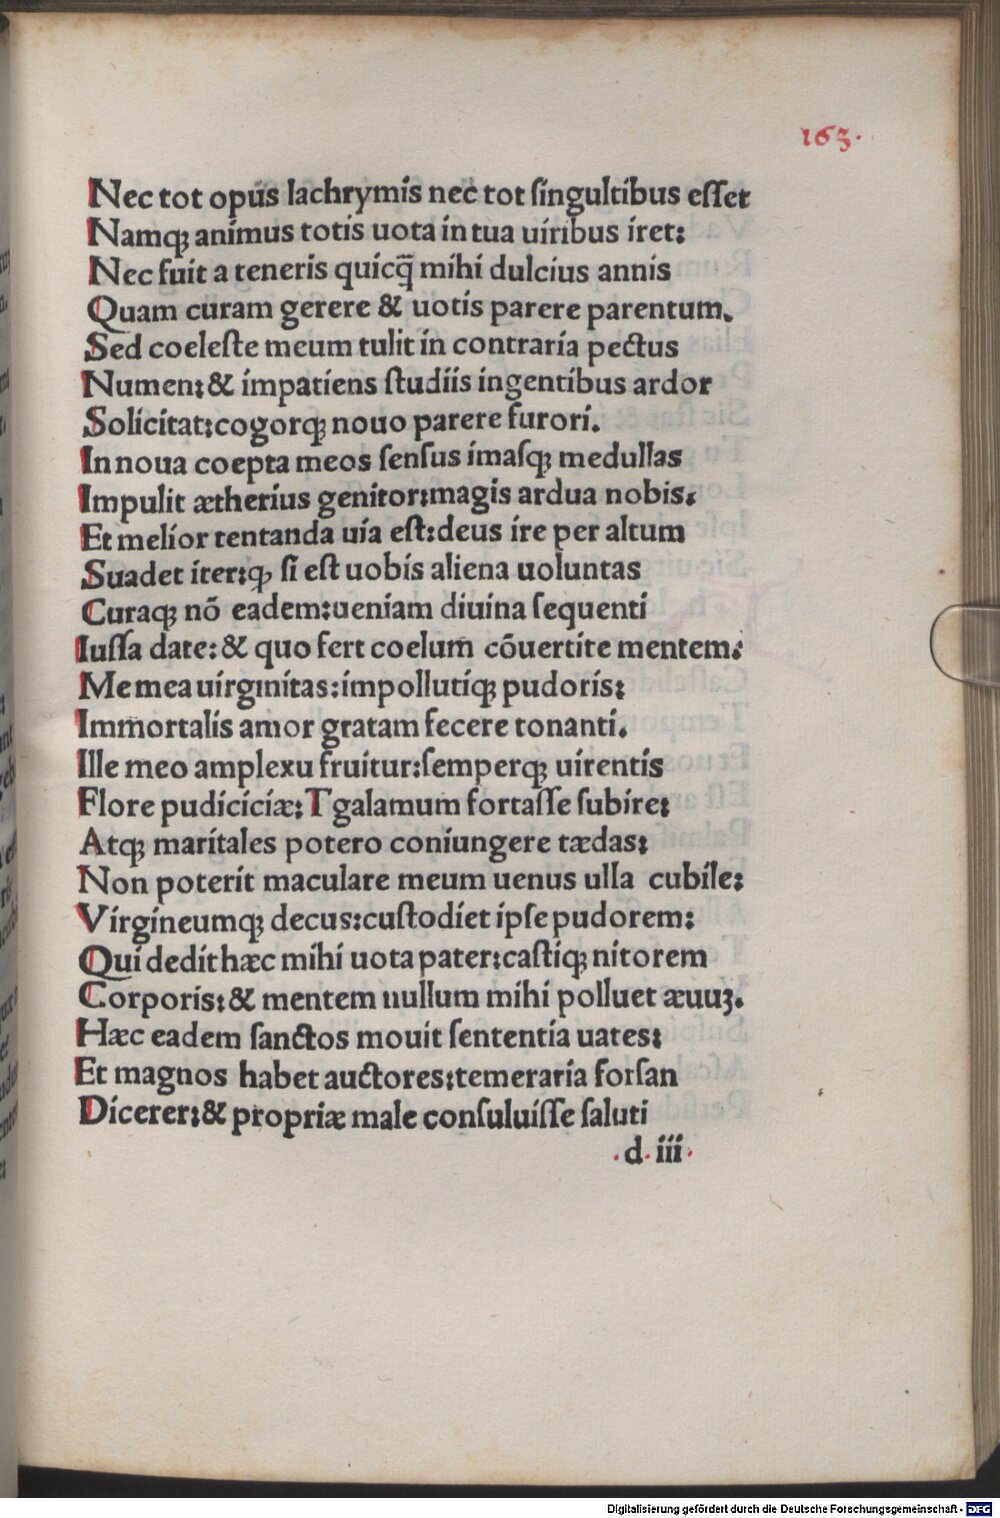 163.
Nec tot opus lachrymis nec tot ſingultibus eſſet
Namqꝫ animus totis uota in tua uiribus iret:
Nec fuit a teneris quicq̃ mihi dulcius annis
Quam curam gerere & uotis parere parentum.
Sed coeleſte meum tulit in contraria pectus
Numen:& impatiens ſtudiis ingentibus ardor
Solicitat:cogorqꝫ nouo parere furori.
In noua coepta meos ſenſus imaſqꝫ medullas
Impulit ætherius genitor:magis ardua nobis.
Et melior tentanda uia eſt:deus ire per altum
Suadet iter:qꝫ ſi eſt uobis aliena uoluntas
Curaqꝫ nō eadem:ueniam diuina ſequenti
Iuſſa date:& quo fert coelum cōuertite mentem.
Me mea uirginitas:impollutiqꝫ pudoris:
Immortalis amor gratam fecere tonanti.
Ille meo amplexu fruitur:ſemperqꝫ uirentis
Flore pudiciciæ:Tgalamum fortaſſe ſubire:
Atqꝫ maritales potero coniungere tædas:
Non poterit maculare meum uenus ulla cubile:
Virgineumqꝫ decus:cuſtodiet ipſe pudorem:
Qui dedit hæc mihi uota pater:caſtiqꝫ nitorem
Corporis:& mentem nullum mihi polluet æuuꝫ.
Hæc eadem ſanctos mouit ſententia uates:
Et magnos habet auctores:temeraria forſan
Dicerer:& propriæ male conſuluiſſe ſaluti
.d.iii.
Digitalisierung gefördert durch die Deutsche Forschungsgemeinschaft - DFG